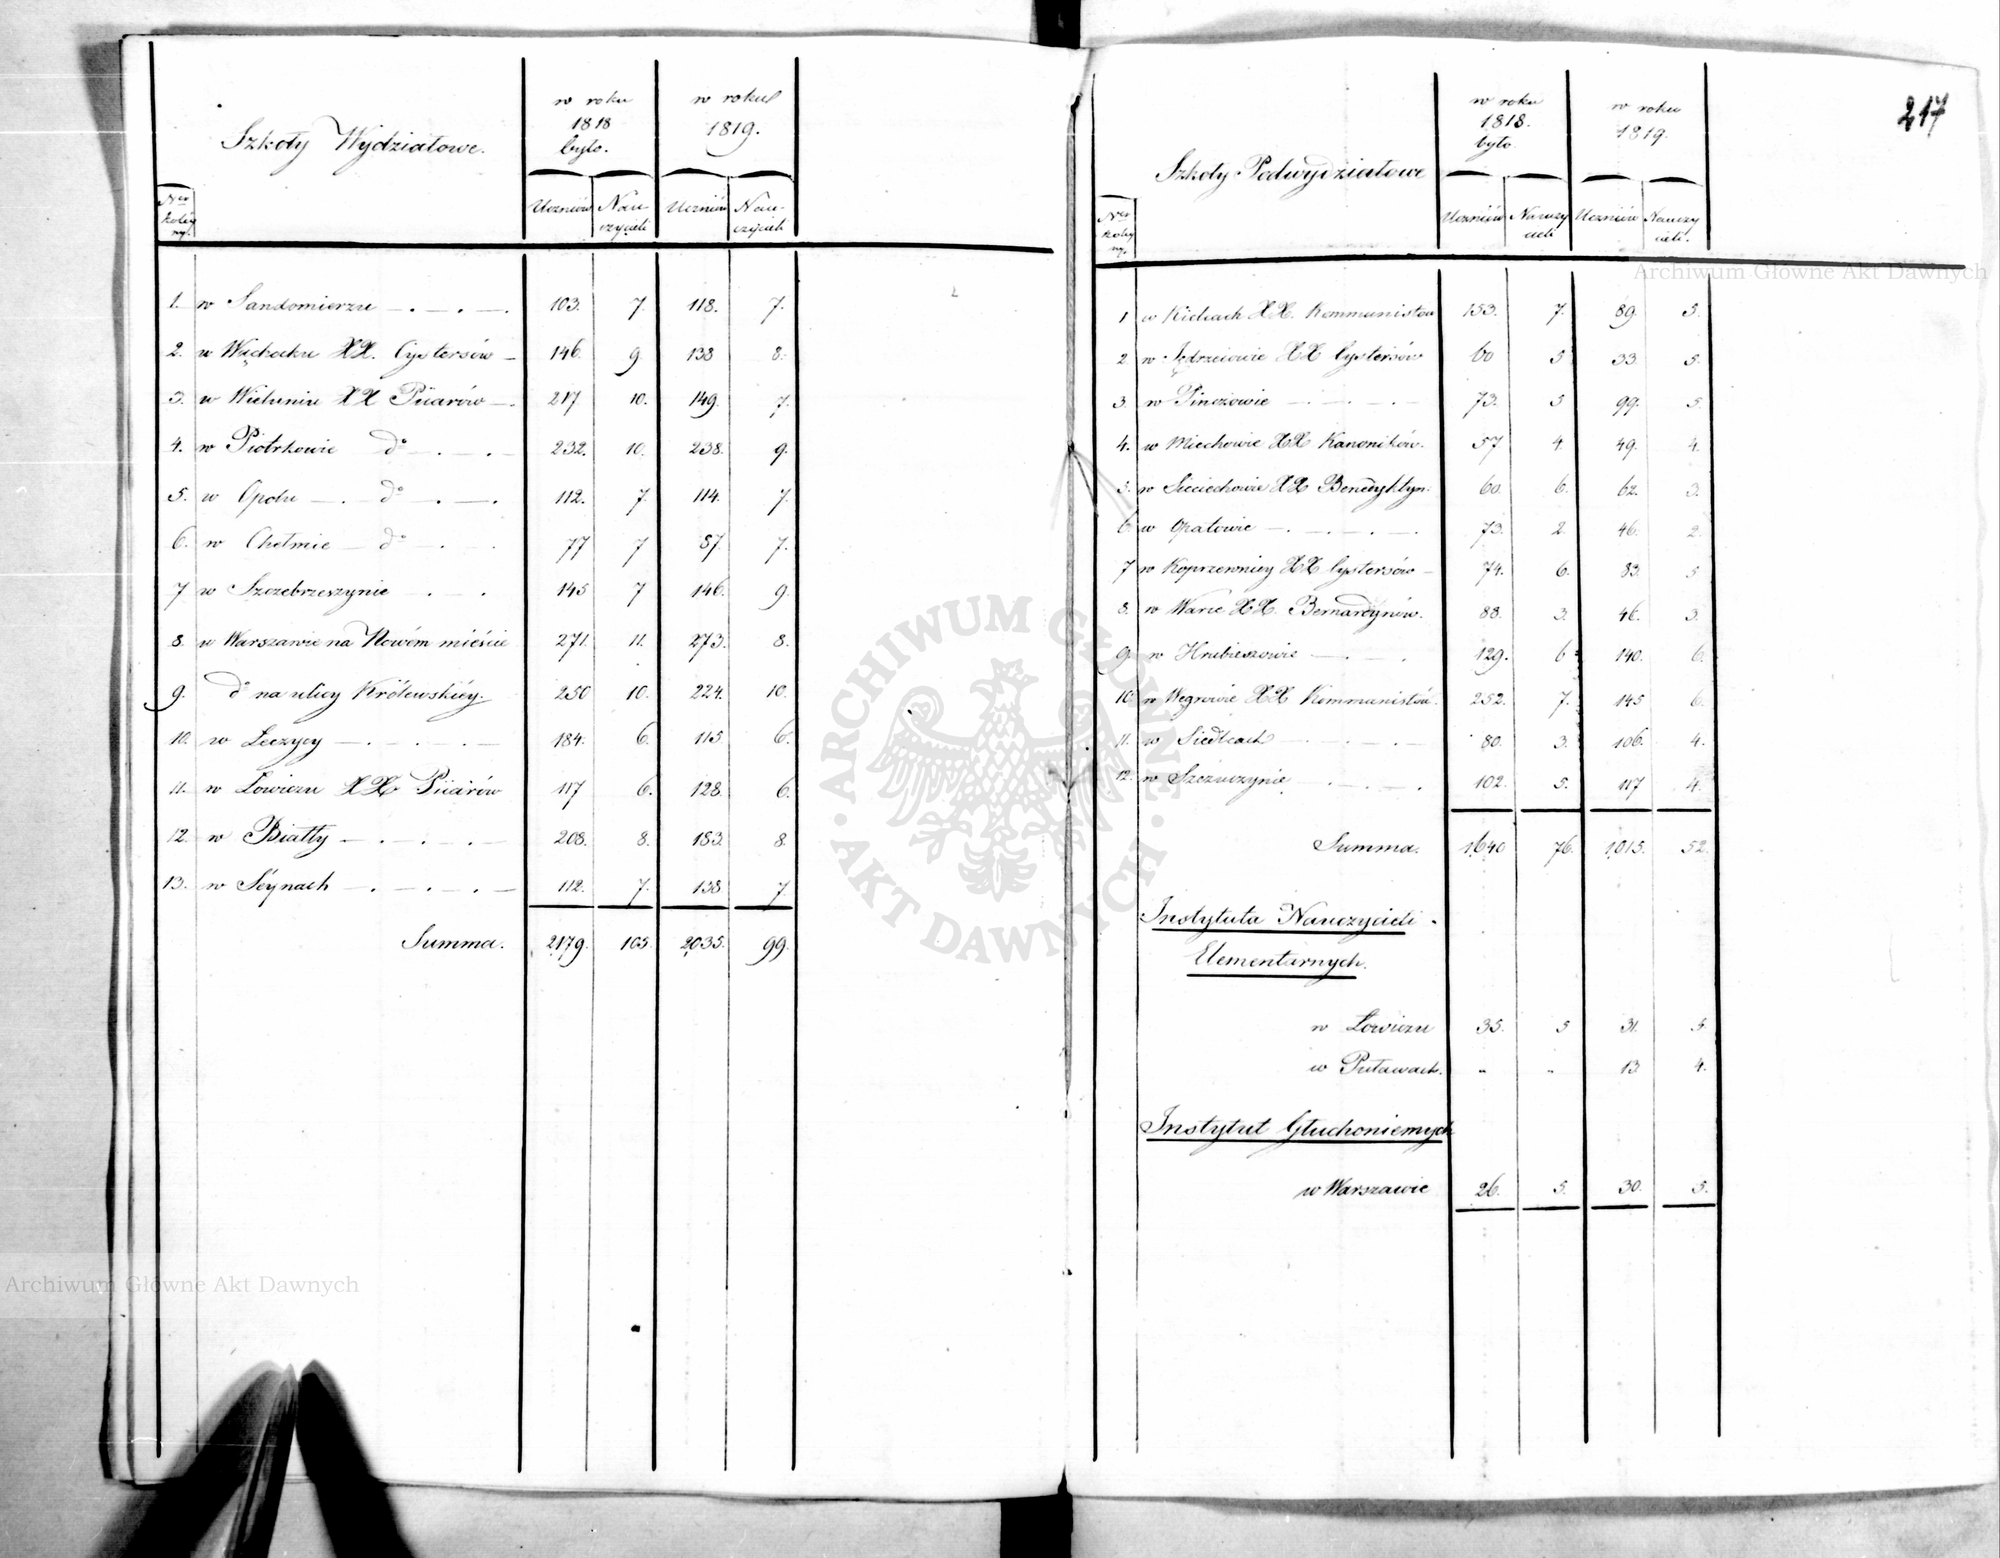 Szkoły Wydziałowe.
w roku 1818 było.
w roku 1819.
Nro kolejny.
Uczniów Nauczycieli Uczniów Nauczycieli
1. w Sandomierzu 103. 7. 118. 7.
2. w Wąchocku XX. Cystersów 146. 9 138 8.
3. w Wieluniu XX Piiarów 217 10. 149. 7.
4. w Piotrkowie do 232. 10. 238. 9.
5. w Opolu do 112. 7. 114. 7.
6. w Chełmie do 77 7 87. 7.
7 w Szczebrzeszynie 145 7 146. 9.
8. w Warszawie na Nowém mieście 271. 11. 273. 8.
9. do na ulicy Królewskiéy. 250 10. 224. 10.
10. w Łęczycy 184. 6. 115. 6.
11. w Łowiczu XX Piiarów 117 6. 128. 6.
12. w Białły 208. 8. 183. 8.
13. w Séynach 112. 7. 138 7.
Summa. 2179. 105. 2035. 99.
217
Szkoły Podwydziałowe
w roku 1818. było
w roku 1819.
Nro kolejny.
Uczniów Nauczycieli Uczniów Nauczycieli.
1 w Kielcach XX. Kommunistów 153. 7. 89. 5.
2 w Jędrzeiowie XX Cystersów 60 5 33. 5.
3. w Pinczowie 73. 5 99. 5.
4. w Miechowie XX Kanoników. 57 4. 49. 4.
5. w Sieciechowie XX Benedyktyn. 60. 6. 62. 3.
6. w Opatowie 73. 2. 46. 2.
7 w Koprzewnicy XX Cystersów 74. 6. 83. 5
8. w Warce XX. Bernardynów. 88. 3. 46. 3.
9. w Hrubieszowie 129. 6 140. 6.
10. w Węgrowie XX Kommunistów. 252. 7. 145 6.
11. w Siedlcach 80. 3. 106. 4.
12. w Szczuczynie 102. 5. 117 4.
Summa. 1640 76. 1015. 52.
Instytuta Nauczycieli
Elementarnych.
w Łowiczu 35. 5 31. 5
w Puławach. " " 13 4.
Instytut Głuchoniemych
w Warszawie 26. 5. 30. 5.
Archiwum Główne Akt Dawnych
Archiwum Główne Akt Dawnych
ARCHIWUM GŁÓWNE AKT DAWNYCH